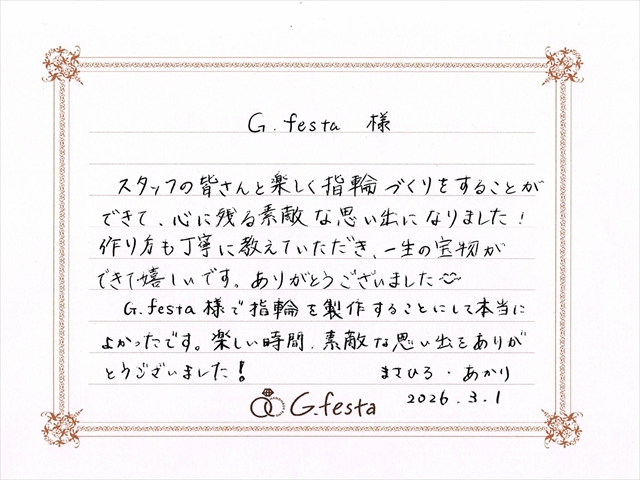 G.festa 様
スタッフの皆さんと楽しく指輪づくりをすることが
できて、心に残る素敵な思い出になりました!
作り方も丁寧に教えていただき、一生の宝物が
できて嬉しいです。ありがとうございました
G.festa様で指輪を製作することにして本当に
よかったです。楽しい時間、素敵な思い出をありが
とうございました! まさひろ・あかり
2026.3.1
G.festa